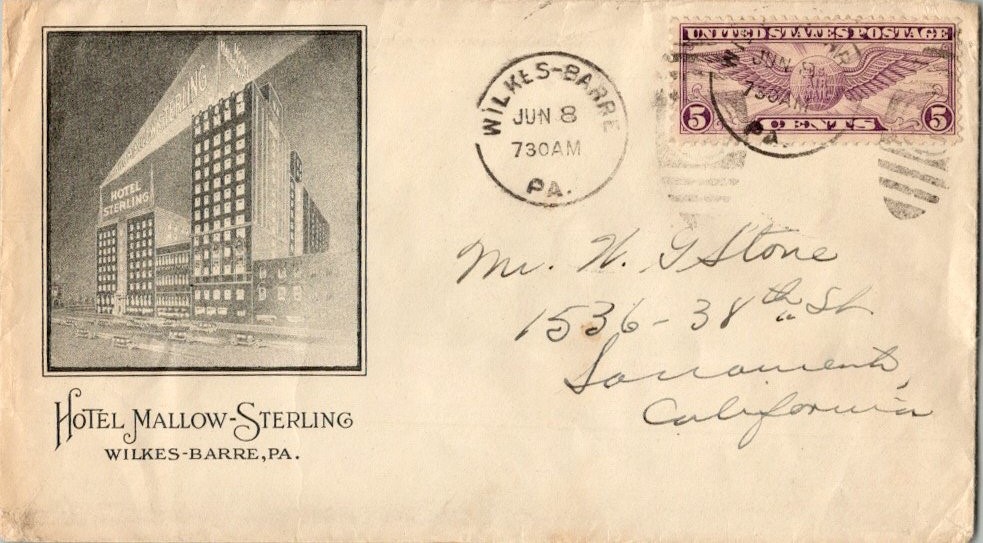 HOTEL
STERLING
HOTEL MALLOW-STERLING
WILKES-BARRE, PA.
WILKES-BARRE
JUN 8
730AM
PA.
UNITED STATES POSTAGE
JUN 8
730AM
PA.
5 CENTS 5
Mr. W. G Stone
1536-38th St
Sacramento,
California